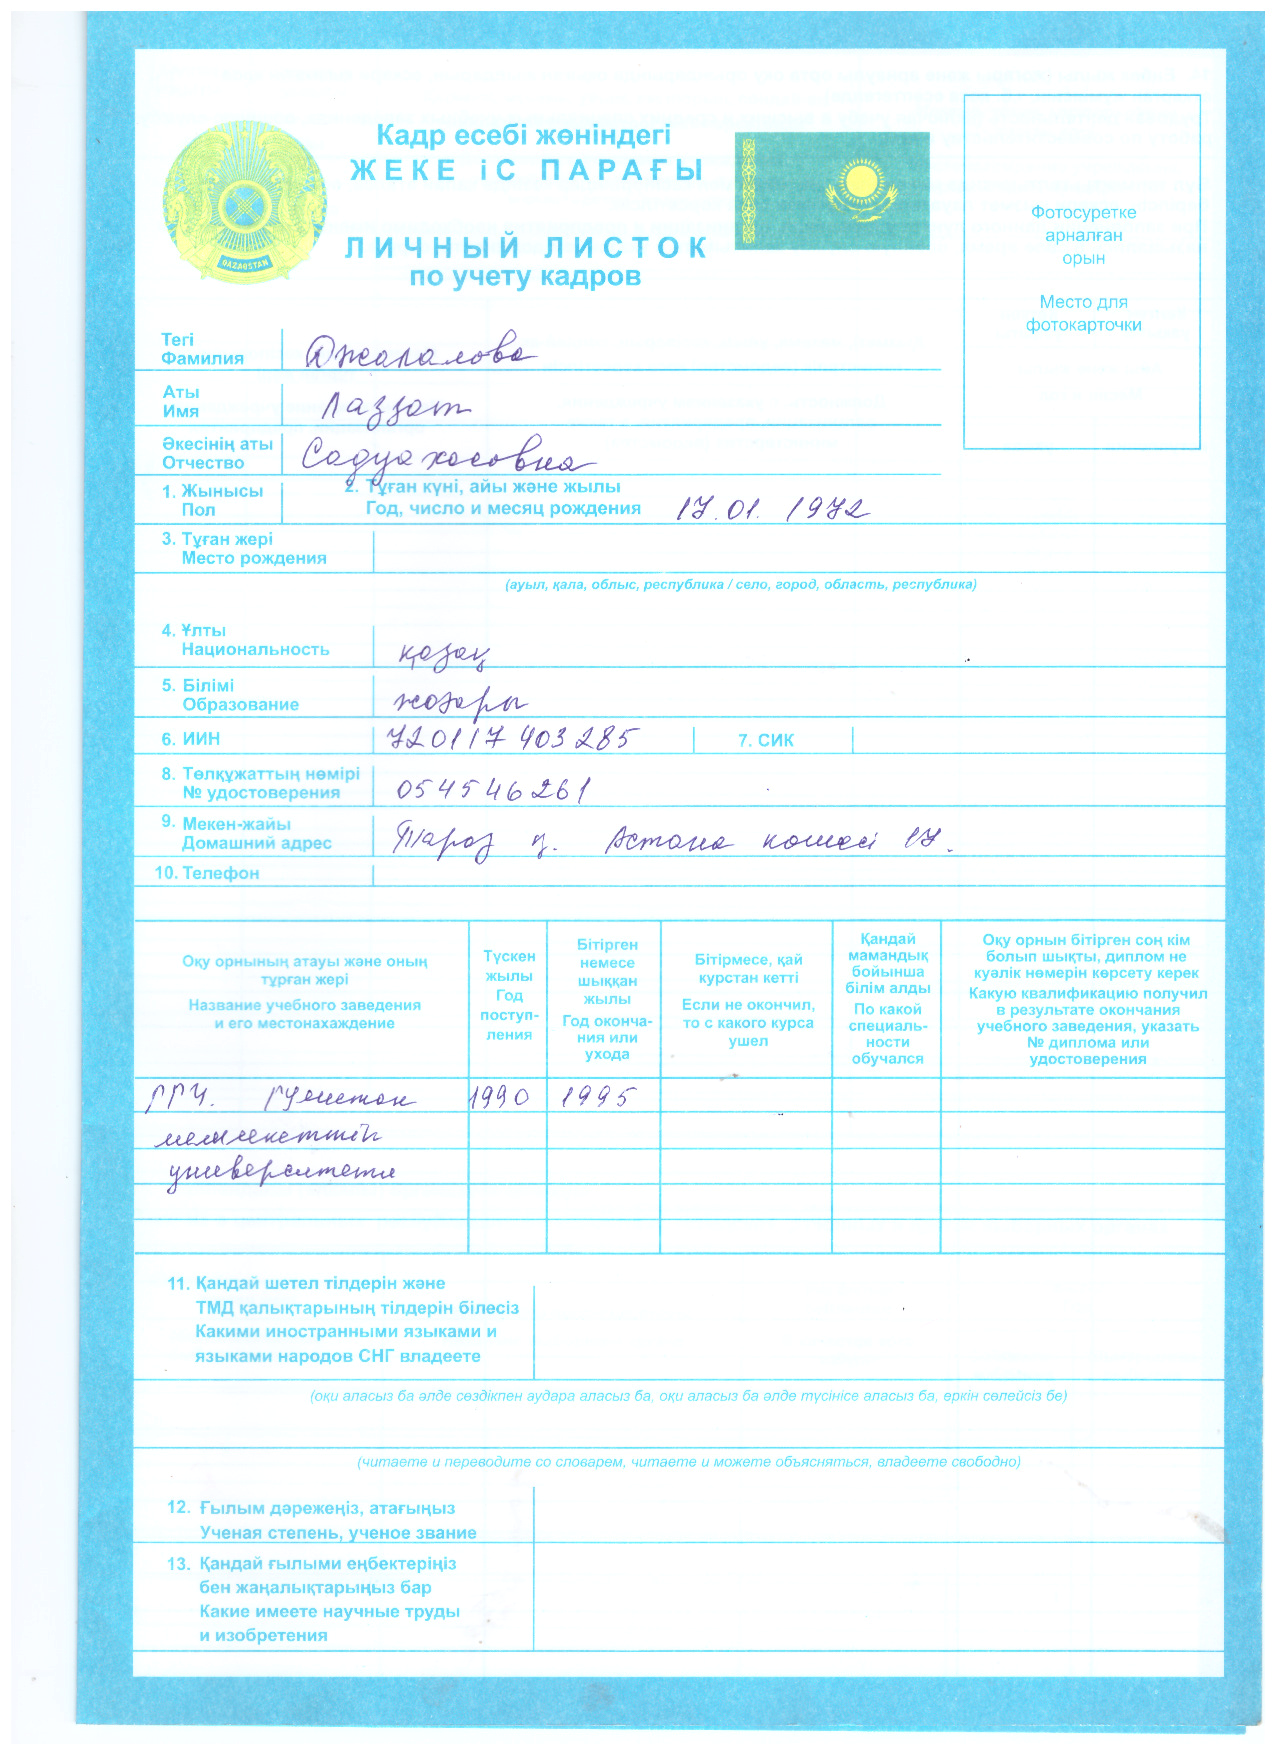 Кадр есебі жөніндегі
ЖЕКЕ іС ПАРАҒЫ
ЛИЧНЫЙ ЛИСТОК
по учету кадров
QAZAQSTAN
Фотосуретке
арналған
орын
Место для
фотокарточки
Тегі
Фамилия
Джалалова
Аты
Имя
Лаззат
Әкесінің аты
Отчество
Садуахасовна
1. Жынысы
Пол
2. Туған күні, айы және жылы
Год, число и месяц рождения
17.01. 1972
3. Туған жері
Место рождения
(ауыл, қала, облыс, республика / село, город, область, республика)
4. Ұлты
Национальность
қазақ
5. Білімі
Образование
жоғары
6. ИИН
720117403285
7. СИК
8. Төлқұжаттың нөмірі
№ удостоверения
054546261
9. Мекен-жайы
Домашний адрес
Тараз қ. Астана көшесі 17.
10. Телефон
Оқу орнының атауы және оның
тұрған жері
Название учебного заведения
и его местонахаждение
Түскен
жылы
Год
поступ-
ления
Бітірген
немесе
шыққан
жылы
Год оконча-
ния или
ухода
Бітірмесе, қай
курстан кетті
Если не окончил,
то с какого курса
ушел
Қандай
мамандық
бойынша
білім алды
По какой
специаль-
ности
обучался
Оқу орнын бітірген соң кім
болып шықты, диплом не
куәлік нөмерін көрсету керек
Какую квалификацию получил
в результате окончания
учебного заведения, указать
№ диплома или
удостоверения
1990 1995
мемлекеттік
университеті
11. Қандай шетел тілдерін және
ТМД қалықтарының тілдерін білесіз
Какими иностранными языками и
языками народов СНГ владеете
(оқи аласыз ба әлде сөздікпен аудара аласыз ба, оқи аласыз ба әлде түсінісе аласыз ба, еркін сөлейсіз бе)
(читаете и переводите со словарем, читаете и можете объясняться, владеете свободно)
12. Ғылым дәрежеңіз, атағыңыз
Ученая степень, ученое звание
13. Қандай ғылыми еңбектеріңіз
бен жаңалықтарыңыз бар
Какие имеете научные труды
и изобретения